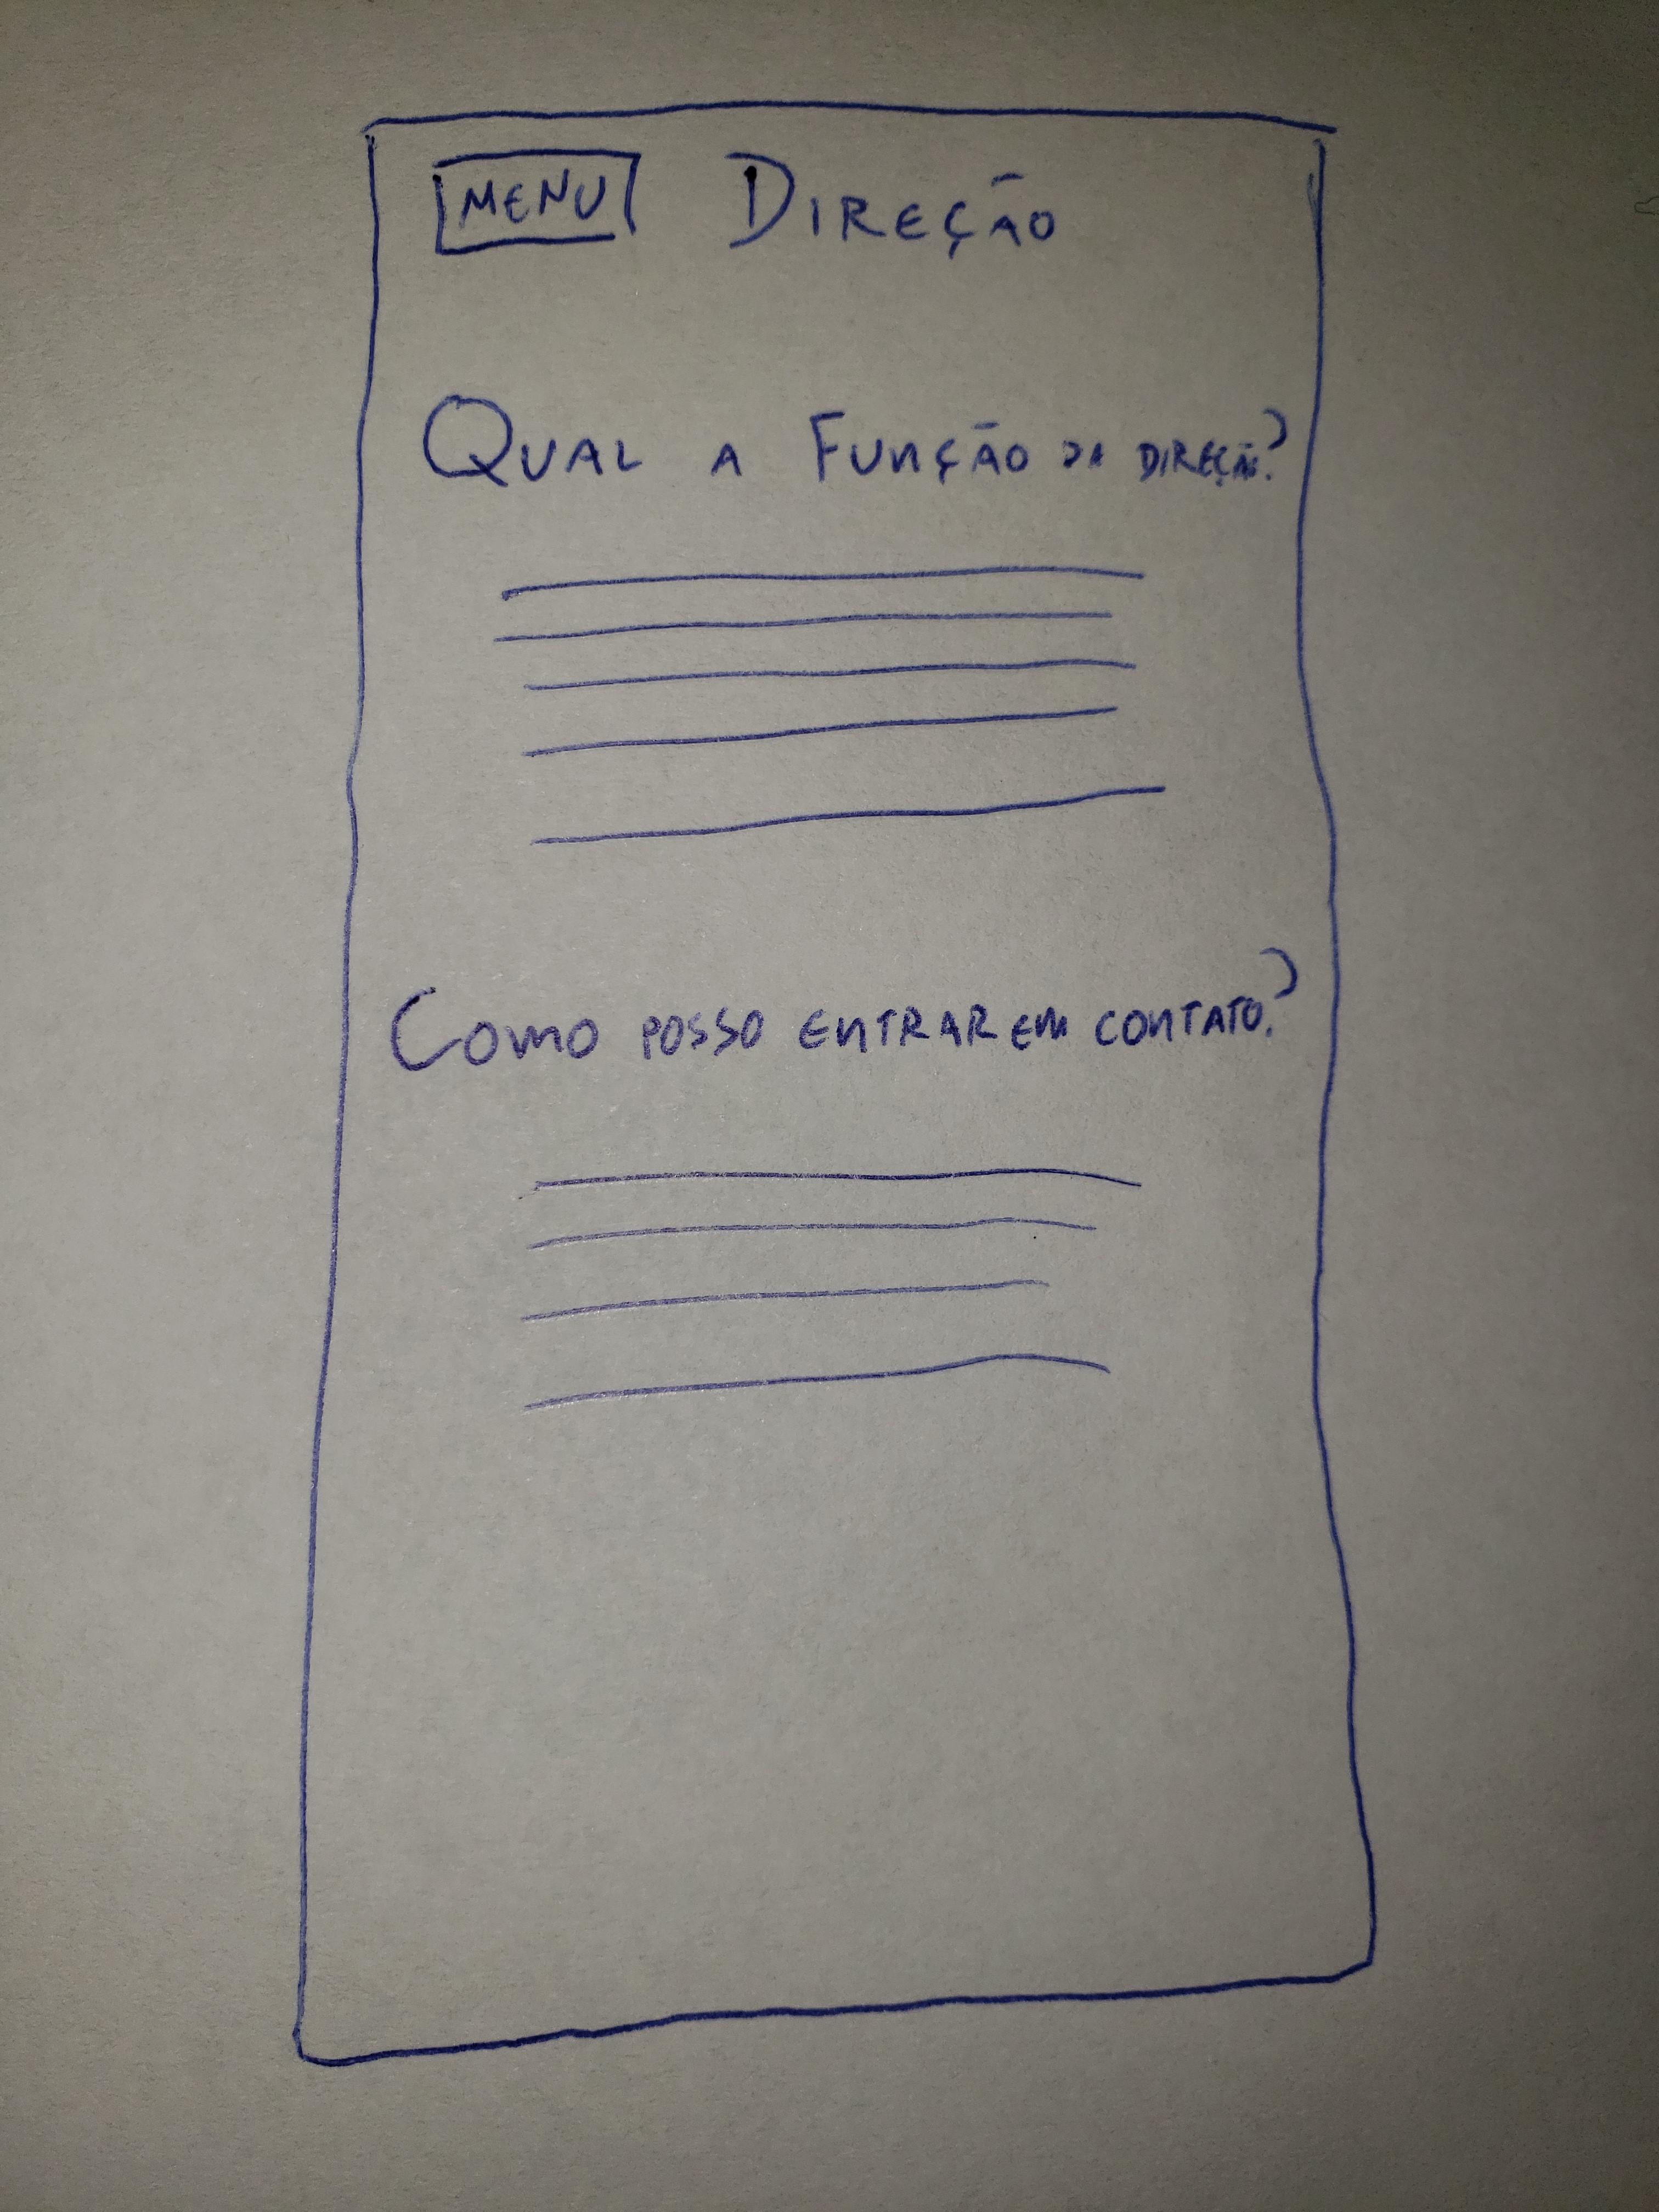 MENU DIREÇÃO
QUAL A FUNÇÃO DA DIREÇÃO?
COMO POSSO ENTRAR EM CONTATO?